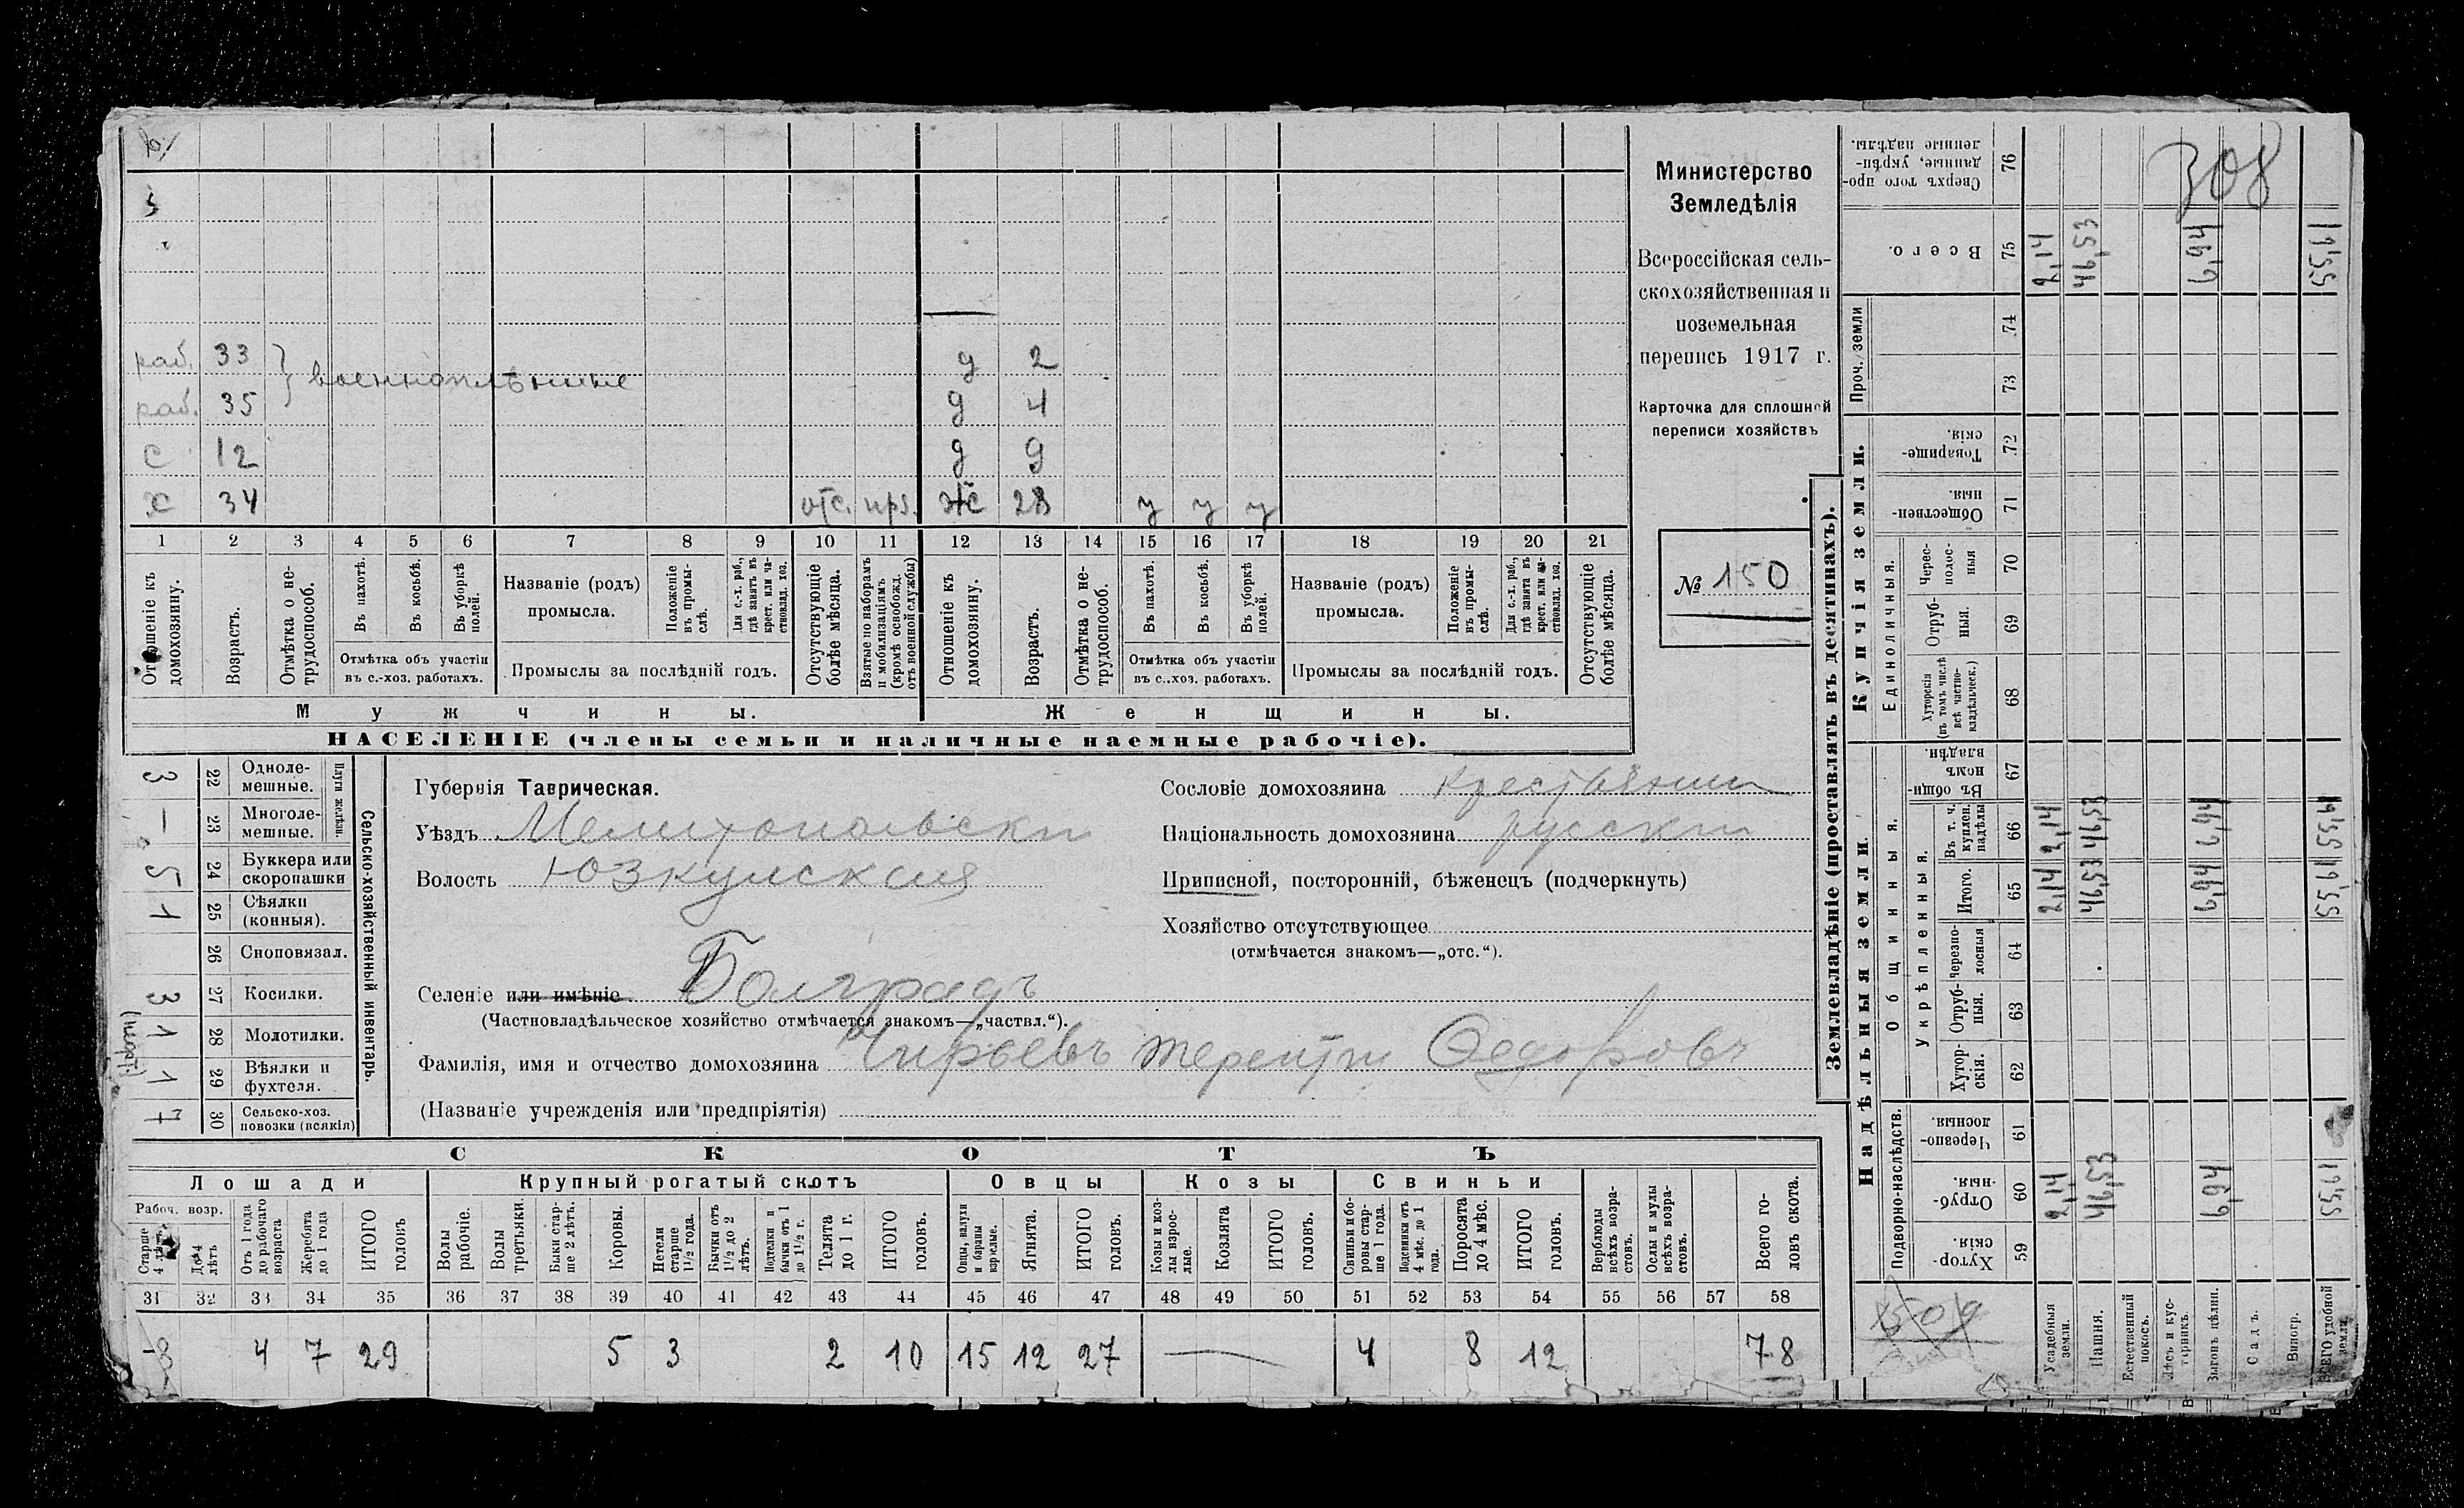 Министерство
Земледѣлія
Всероссійская сель-
скохозяйственная и
поземельная
перепись 1917 г.
Карточка для сплошной
переписи хозяйствъ
№ 150
308
раб. 33 военноплѣнные д 2
раб. 35 д 4
с 12 д 9
х 34 отс. ж 28 у у у
1 2 3 4 5 6 7 8 9 10 11 12 13 14 15 16 17 18 19 20 21
Отношеніе къ домохозяину.
Возрастъ.
Отмѣтка о не-
трудоспособ.
Въ пахотѣ.
Въ косьбѣ.
Въ уборкѣ
полей.
Отмѣтка объ участіи
въ с.-хоз. работахъ.
Названіе (родъ)
промысла.
Положеніе
въ промы-
слѣ.
Для с.-х. раб.,
гдѣ занятъ въ
крест. или ча-
стновлад. хоз.
Промыслы за послѣдній годъ.
Отсутствующіе
болѣе мѣсяца.
Взятые по наборамъ
и мобилизаціямъ
(кромѣ освобожд.
отъ военной службы)
Отношеніе къ
домохозяину.
Возрастъ.
Отмѣтка о не-
трудоспособ.
Въ пахотѣ.
Въ косьбѣ.
Въ уборкѣ
полей.
Отмѣтка объ участіи
въ с.-хоз. работахъ.
Названіе (родъ)
промысла.
Положеніе
въ промы-
слѣ.
Для с.-х. раб.,
гдѣ занята въ
крест. или ча-
стновлад. хоз.
Промыслы за послѣдній годъ.
Отсутствующіе
болѣе мѣсяца.
Мужчины. Женщины.
НАСЕЛЕНІЕ (члены семьи и наличные наемные рабочіе).
Сельско-хозяйственный инвентарь.
Плуги желѣзн.
3 22 Одноле-
мешные.
— 23 Многоле-
мешные.
5 24 Буккера или
скоропашки
1 25 Сѣялки
(конныя).
26 Сноповязал.
3 27 Косилки.
1 28 Молотилки.
1 29 Вѣялки и
фухтеля.
7 30 Сельско-хоз.
повозки (всякія)
Губернія Таврическая.
Уѣздъ Мелитопольскій
Волость Юзкуйская
Селеніе или имѣніе Болградъ
(Частновладѣльческое хозяйство отмѣчается знакомъ—„частвл.“).
Фамилія, имя и отчество домохозяина Чирьевъ Терентій Федоровъ
(Названіе учрежденія или предпріятія)
Сословіе домохозяина крестьянин
Національность домохозяина русскій
Приписной, посторонній, бѣженецъ (подчеркнуть)
Хозяйство отсутствующее
(отмѣчается знакомъ—„отс.“).
СКОТЪ
Лошади Крупный рогатый скотъ Овцы Козы Свиньи
Рабоч. возр.
Старше
4 лѣтъ
До 4
лѣтъ
Отъ 1 года
до рабочаго
возраста
Жеребята
до 1 года
ИТОГО
головъ
Волы
рабочіе.
Волы
третьяки.
Быки стар-
ше 2 лѣтъ.
Коровы.
Нетели
старше
1½ года.
Бычки отъ
1½ до 2
лѣтъ.
Подтелки и
бычки отъ 1
до 1½ г.
Телята
до 1 г.
ИТОГО
головъ.
Овцы, валухи
и бараны
взрослые.
Ягнята.
ИТОГО
головъ.
Козы и коз-
лы взрос-
лые.
Козлята
ИТОГО
головъ.
Свиньи и бо-
ровы стар-
ше 1 года.
Подсвинки отъ
4 мѣс. до 1
года.
Поросята
до 4 мѣс.
ИТОГО
головъ.
Верблюды
всѣхъ возра-
стовъ.
Ослы и мулы
всѣхъ возра-
стовъ.
Всего го-
ловъ скота.
31 32 33 34 35 36 37 38 39 40 41 42 43 44 45 46 47 48 49 50 51 52 53 54 55 56 57 58
4 7 29 5 3 2 10 15 12 27 — 4 8 12 78
Землевладѣніе (проставлять въ десятинахъ).
Надѣльныя земли. Купчія земли. Проч. земли
Подворно-наслѣдств. Общинныя. Укрѣпленныя. Единоличныя.
Хутор-
скія. 59
Отруб-
ныя. 60
Черезпо-
лосныя 61
Хутор-
скія. 62
Отруб-
ныя. 63
Черезпо-
лосныя 64
Итого. 65
Въ т. ч.
куплен.
надѣлы 66
Въ общи-
номъ
владѣн. 67
Хуторскія
(въ томъ числѣ
всѣ частно-
владѣльческ.) 68
Отруб-
ныя. 69
Черес-
полос-
ныя 70
Обществен-
ныя. 71
Товарище-
скія. 72
73
74
Всего. 75
Сверхъ того про-
данные, укрѣп-
ленные надѣлы. 76
Усадебныя
земли. 2,14 2,14 2,14 2,14
Пашня. 46,53 46,53 46,53 46,53
Естественный
покосъ.
Лѣсъ и кус-
тарникъ.
Выгонъ цѣлин. 6,94 6,94 6,94 6,94
Садъ.
Виногр.
ВСЕГО удобной
земли. 55,61 55,61 55,61 55,61